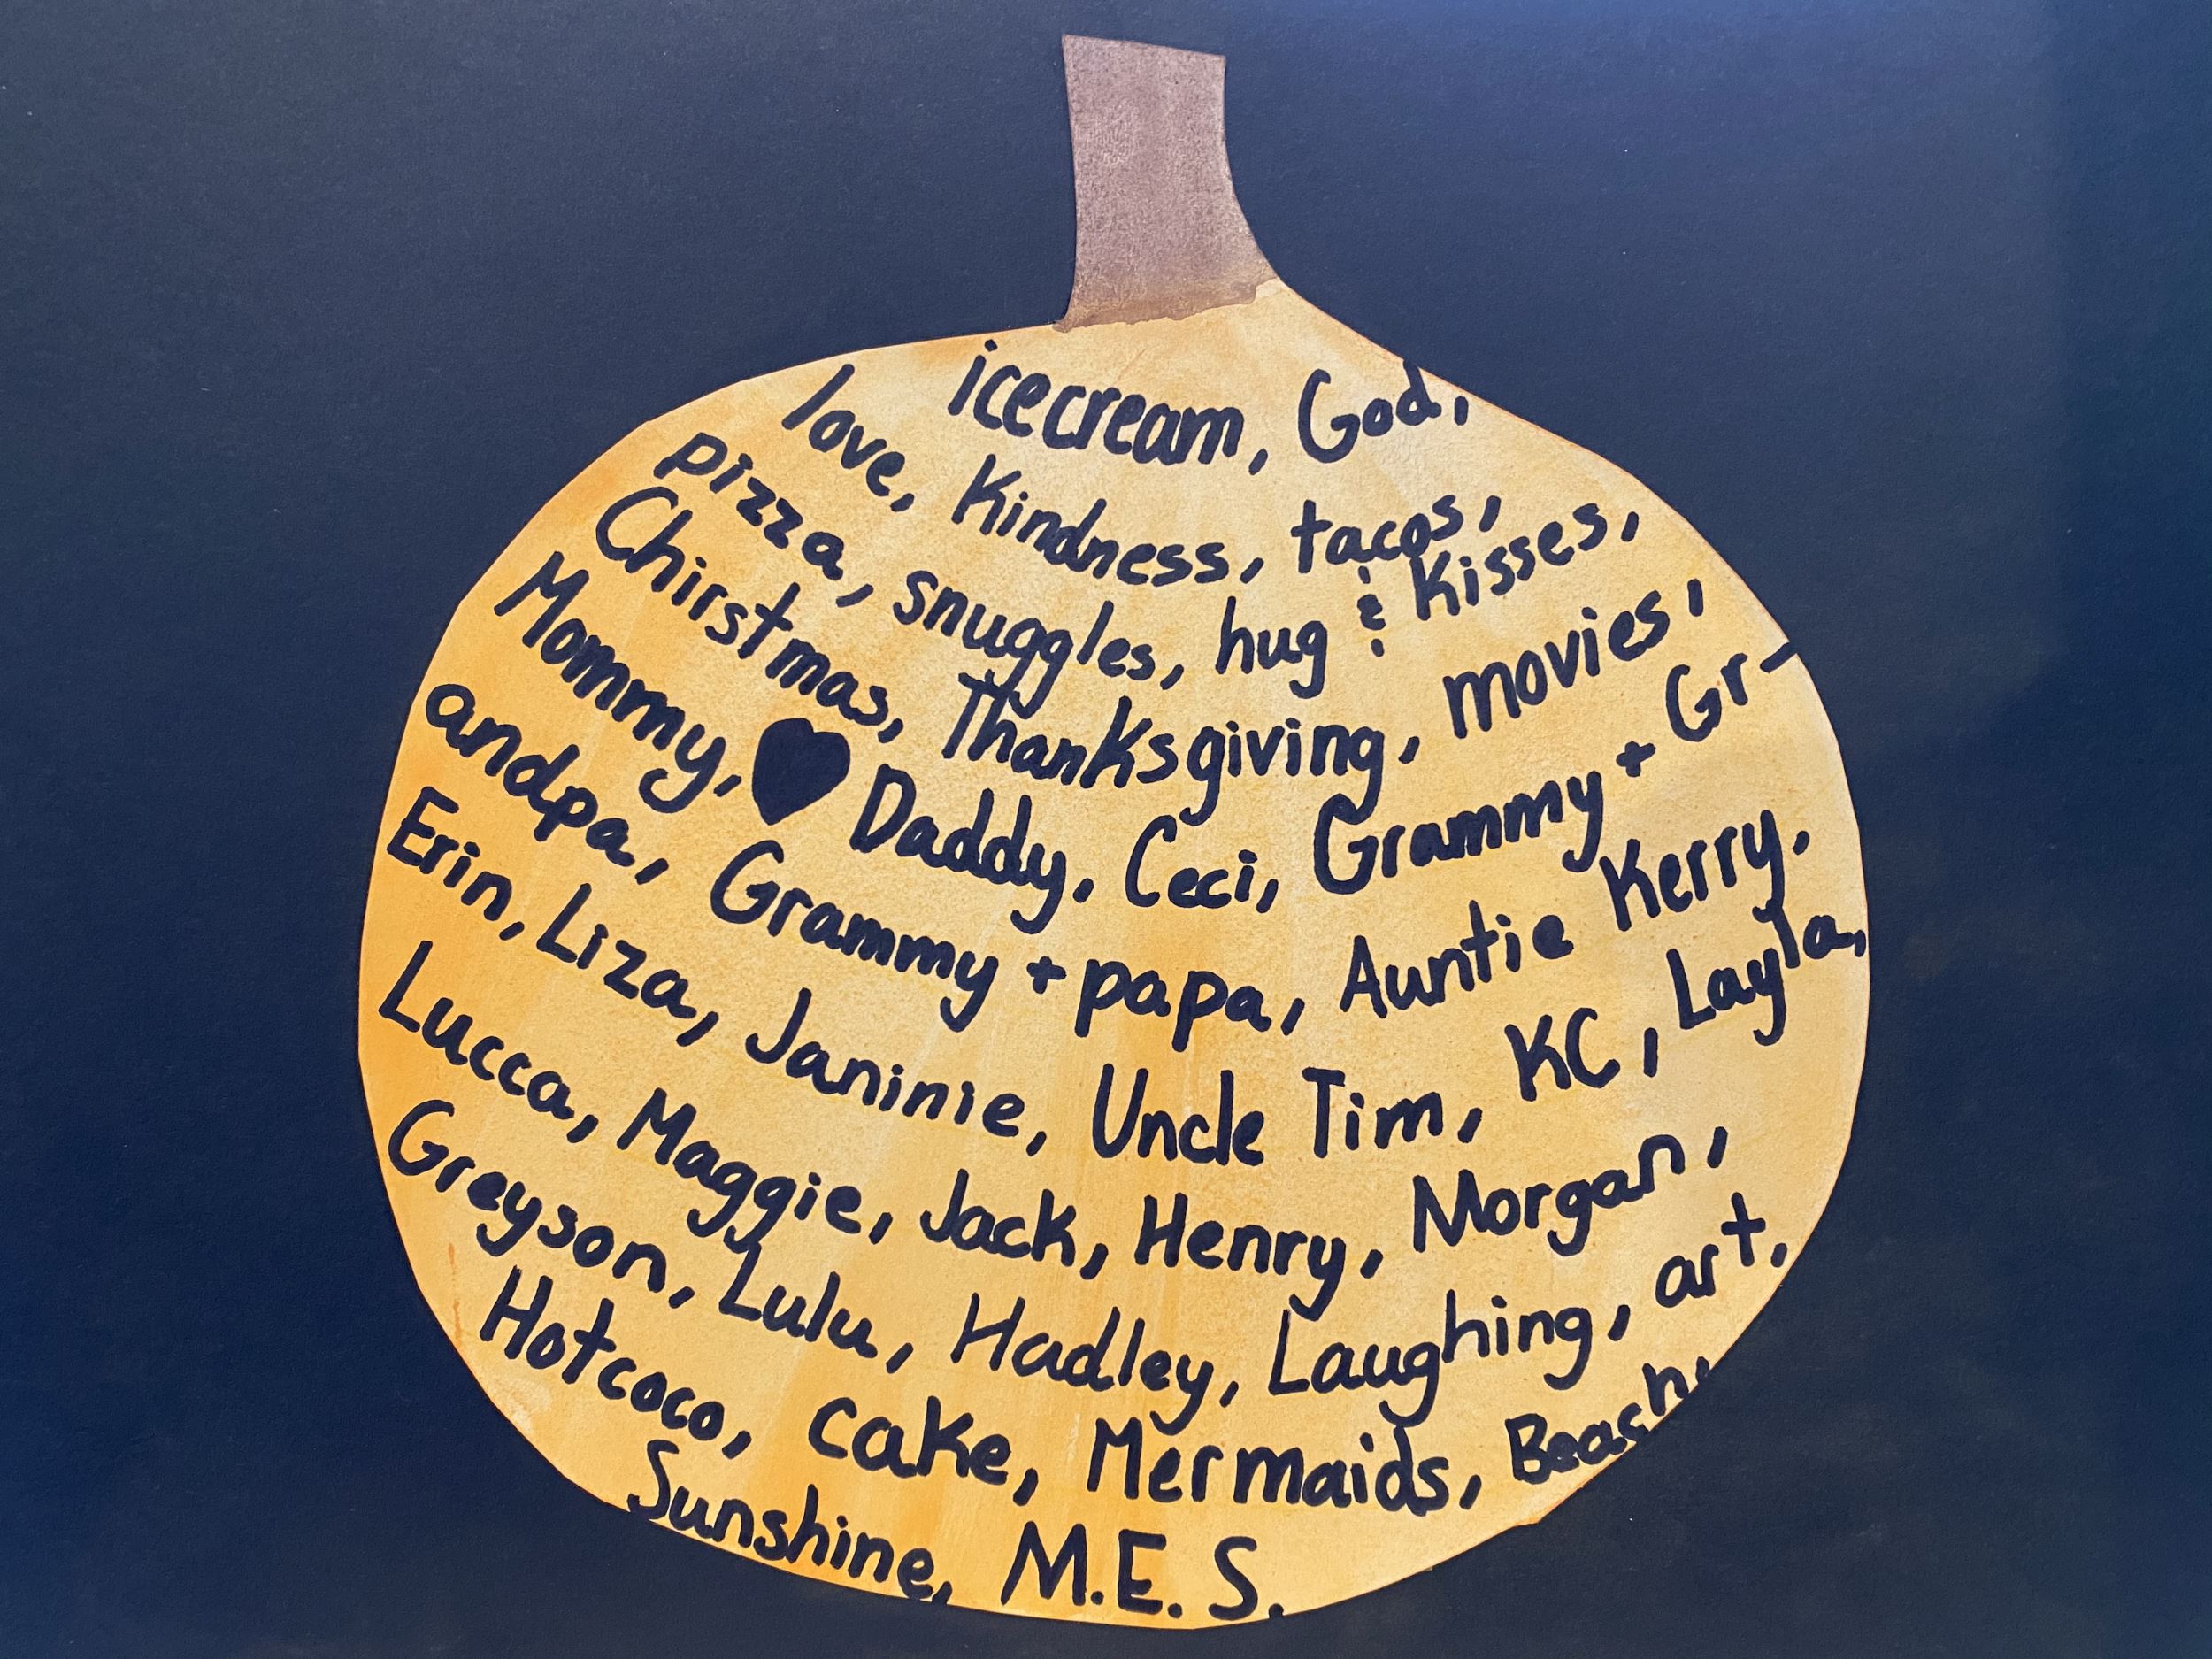 icecream, God,
love, Kindness, tacos,
pizza, snuggles, hug & Kisses,
Chirstmas, Thanksgiving, movies,
Mommy, ♥ Daddy, Ceci, Grammy + Gr-
andpa, Grammy + papa, Auntie Kerry,
Erin, Liza, Janinie, Uncle Tim, KC, Layla,
Lucca, Maggie, Jack, Henry, Morgan,
Greyson, Lulu, Hadley, Laughing, art,
Hotcoco, cake, Mermaids, Beach,
Sunshine, M.E.S.